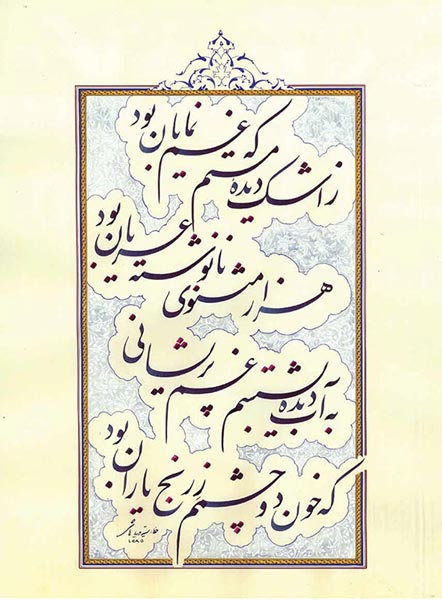 ز اشک دیدهٔ که غم نمایان بود
هزار مثنوی نانوشته عریان بود
به آب دیده شستم غم پریشانی
که خون دو چشمم ز رنج یاران بود
۱۳۸۵